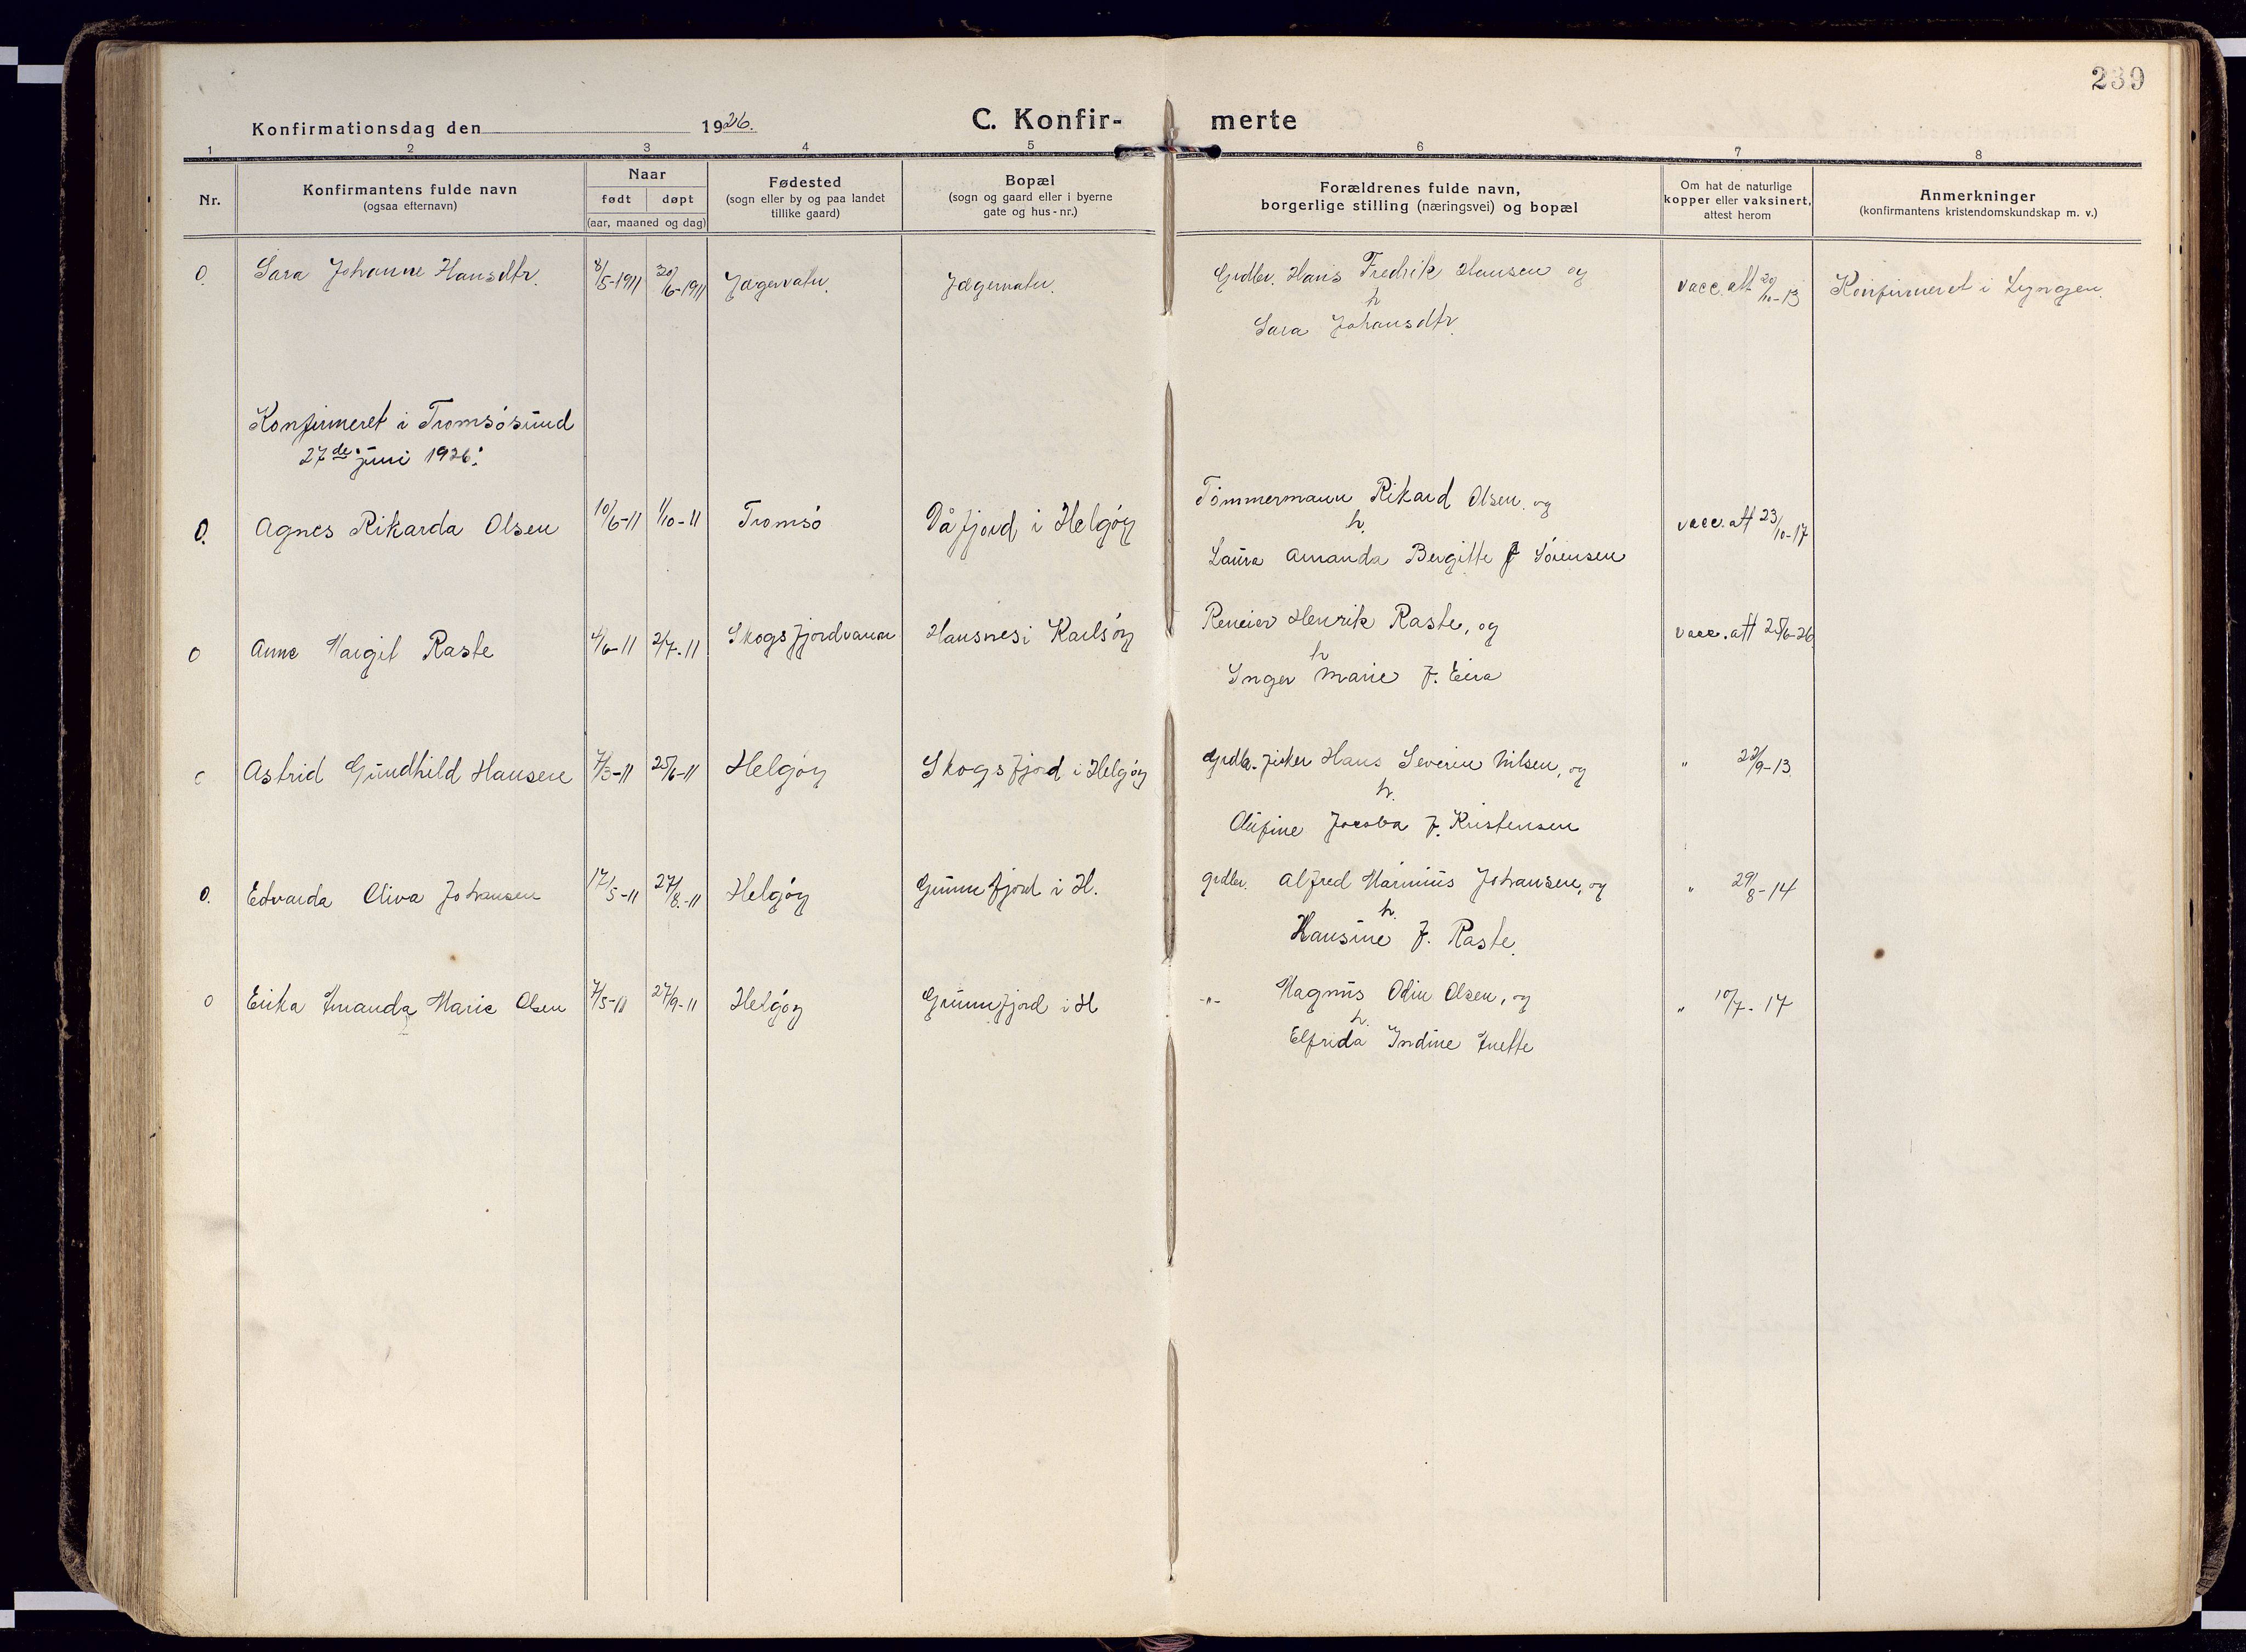 239
Konfirmationsdag den 1926.
C. Konfir- merte
1 2 3 4 5 6 7 8
Nr.
Konfirmantens fulde navn
(ogsaa efternavn)
Naar
født døpt
(aar, maaned og dag)
Fødested
(sogn eller by og paa landet
tillike gaard)
Bopæl
(sogn og gaard eller i byerne
gate og hus-nr.)
Forældrenes fulde navn,
borgerlige stilling (næringsvei) og bopæl
Om hat de naturlige
kopper eller vaksinert,
attest herom
Anmerkninger
(konfirmantens kristendomskundskap m. v.)
0. Sara Johanne Hansdtr. 8/5-1911 20/6-1911 Jægervatn. Jægervatn. Grdbr. Hans Fredrik Hansen og vacc. att 20/10-13 Konfirmeret i Lyngen.
h
Sara Johansdtr.
Konfirmeret i Tromsósund
27de juni 1926:
0. Agnes Rikarda Olsen 10/6-11 1/10-11 Tromsó Dåfjord i Helgóy Tómmermann Rikard Olsen. og vacc. att 23/10-17
h.
Laura Amanda Bergitte f Sórensen
0 Anne Margit Raste 4/6-11 2/7-11 Skogsfjordvann Hansnes i Karlsóy Reneier Henrik Raste, og vacc. att 25/6-26.
h
Inger Marie f. Eira
0 Astrid Gundhild Hansen 7/3-11 25/6-11 Helgóy Skogsfjord i Helgóy Grdbr. fisker Hans Severin Nilsen, og " 22/9-13.
h.
Olufine Jacoba f. Kristensen
0. Edvarda Oliva Johansen 17/5-11 27/8-11 Helgóy Grunnfjord i H. grdbr. Alfred Marinius Johansen, og " 29/8-14
h.
Hansine f. Raste.
0 Erika Amanda Marie Olsen 7/5-11 27/9-11 Helgóy Grunnfjord i H -"- Magnus Odin Olsen, og " 10/7-17
h.
Elfrida Indine Anette